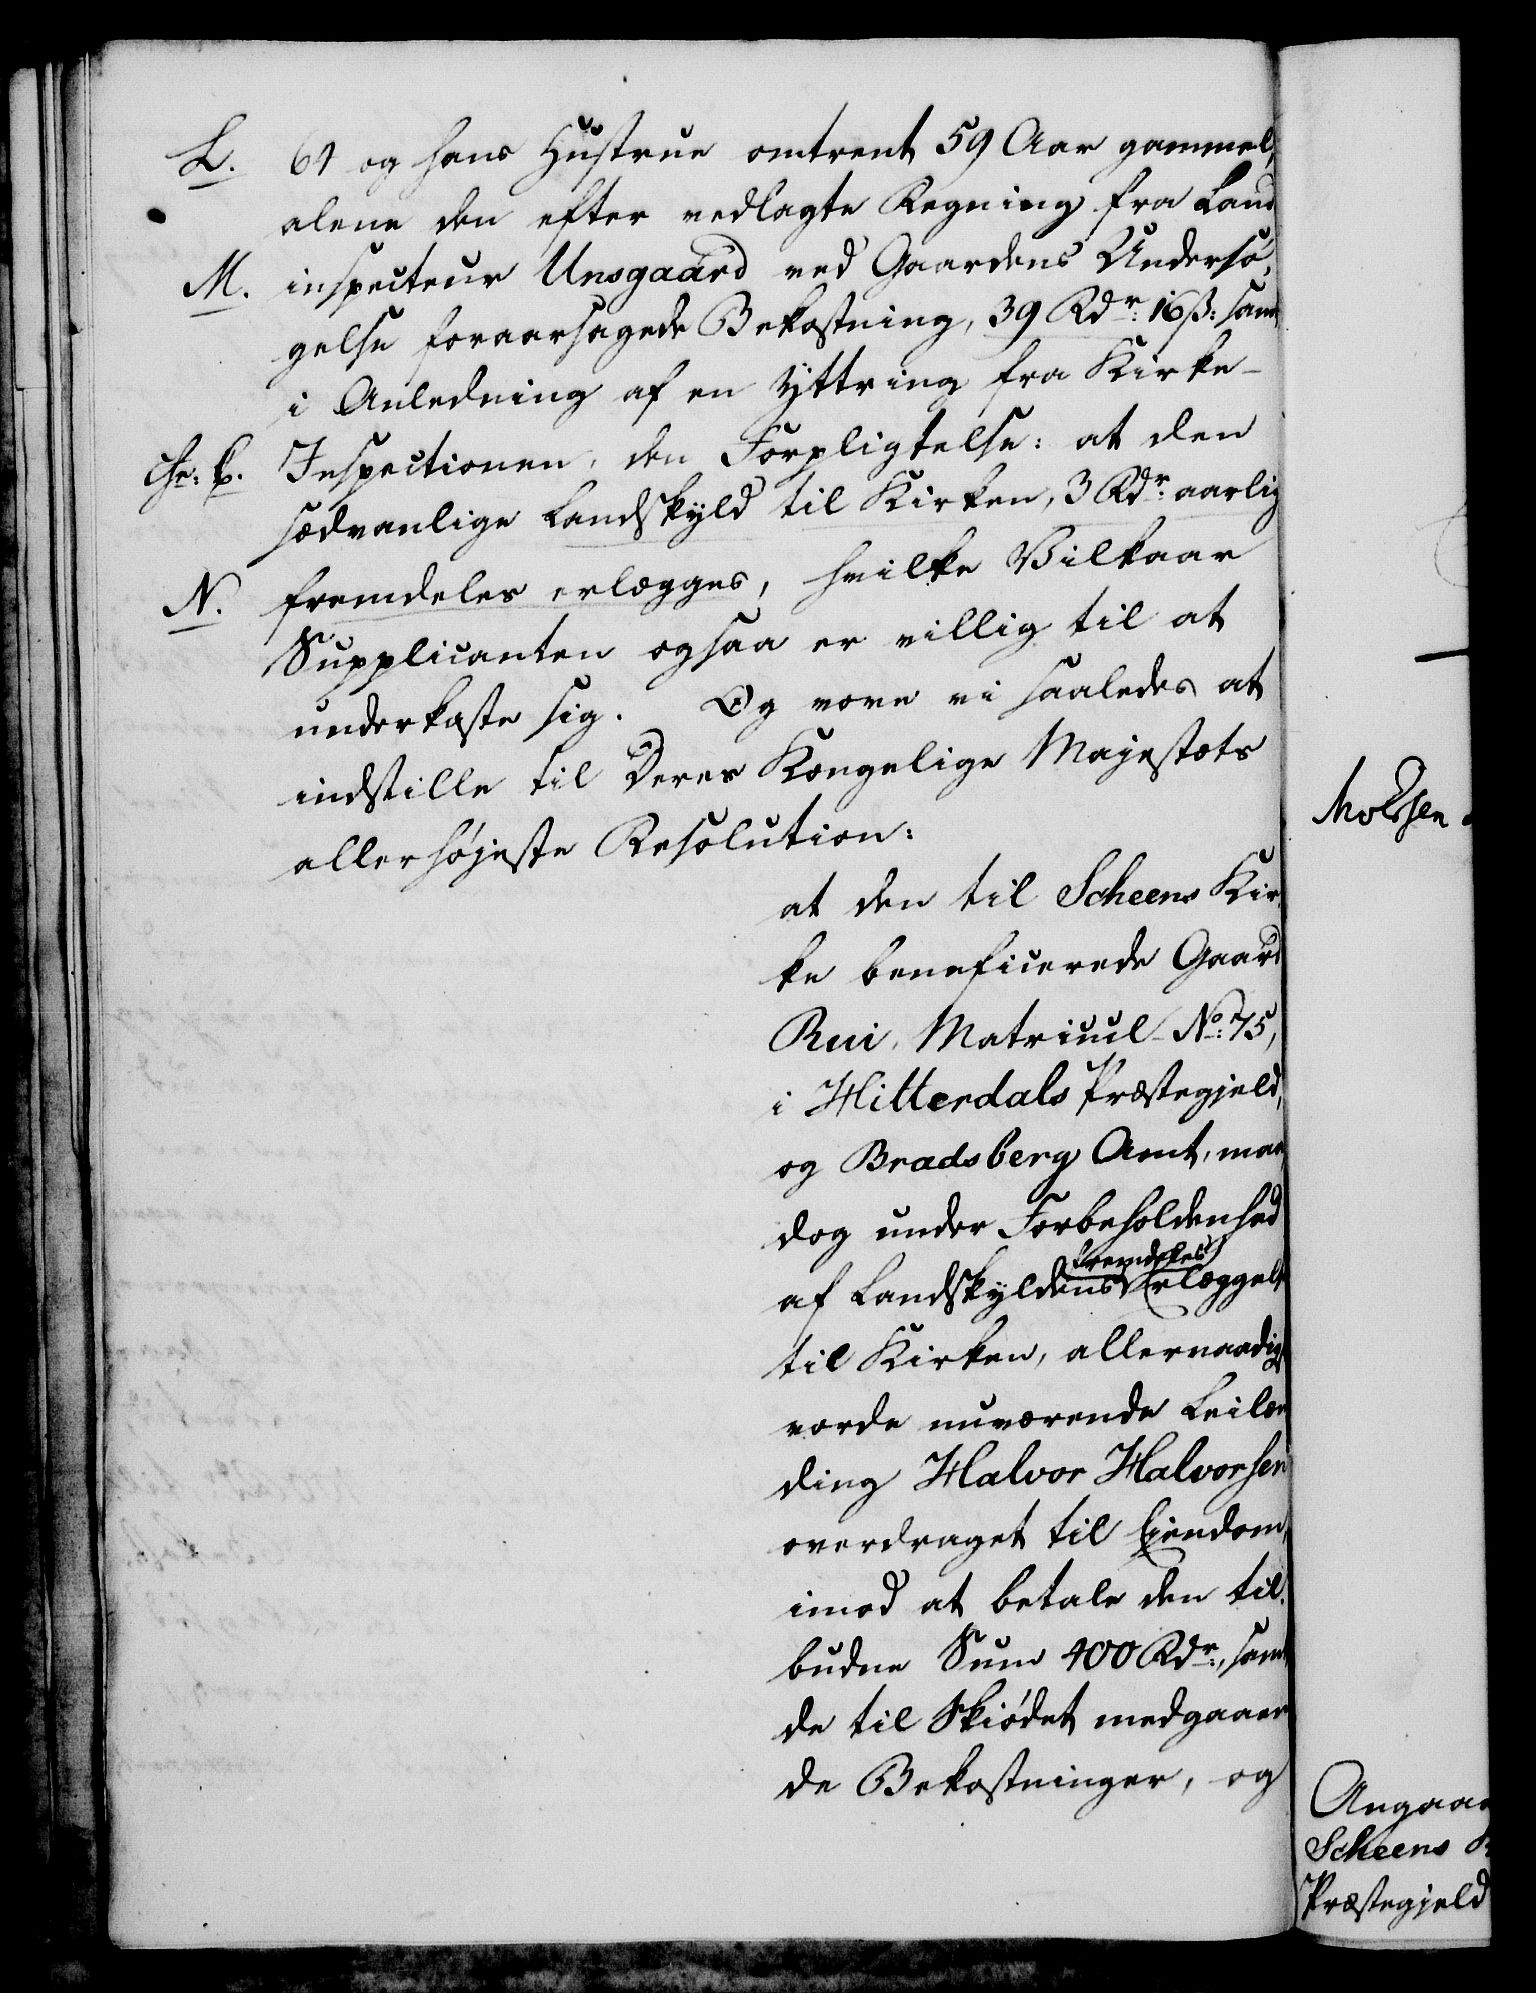 L. 64 og hans Hustrue omtrent 59 Aar gammel,
alene den efter vedlagte Regning fra Land
M. inspecteur Unsgaard ved Gaardens Undersø-
gelse foraarsagede Bekostning, 39 Rdr: 16 ß: samt
i Anledning af en Yttring fra Kirke-
Inspectionen, den Forpligtelse: at den
sædvanlige Landskyld til Kirken, 3 Rdr: aarlig
N. fremdeles erlægges, hvilke Vilkaar
Supplicanten ogsaa er villig til at
underkaste sig. Og vove vi saaledes at
indstille til Deres Kongelige Majestæts
allerhøjeste Resolution:
at den til Scheens Kir-
ke beneficerede Gaard
Rui, Matricul No: 75,
i Hitterdals Præstegjeld,
og Bradsberg Amt, maa
dog under Forbeholdenhed
fremdeles
af Landskyldens Erlæggelse
til Kirken, allernaadigst
vorde nuværende Leilæn
ding Halvor Halvorsen
overdraget til Eiendom,
imod at betale den til-
budne Sum 400 Rdr:, samt
de til Skiødet medgaaen
de Bekostninger, og
Angaae
Scheens K
Præstegjeld